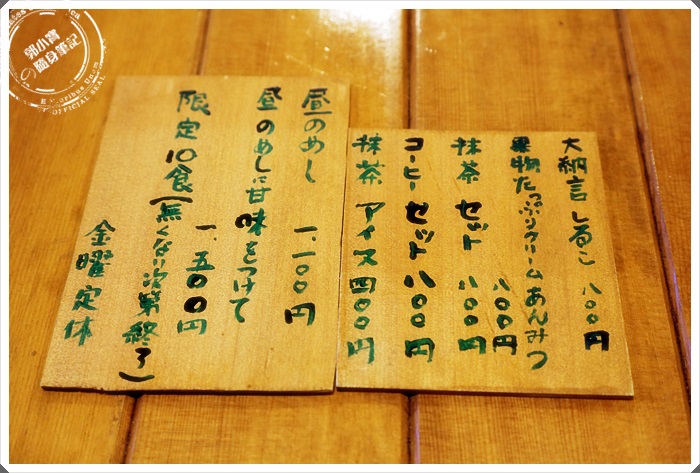 大納言しるこ 八〇〇円
果物たっぷりクリームあんみつ
八〇〇円
抹茶セット 八〇〇円
コーヒーセット 八〇〇円
抹茶アイス 四〇〇円
昼のめし 一、一〇〇円
昼のめしに甘味をつけて
一、五〇〇円
限定10食(無くなり次第終了)
金曜定休
郭小寶
の隨身筆記
OFFICIAL SEAL